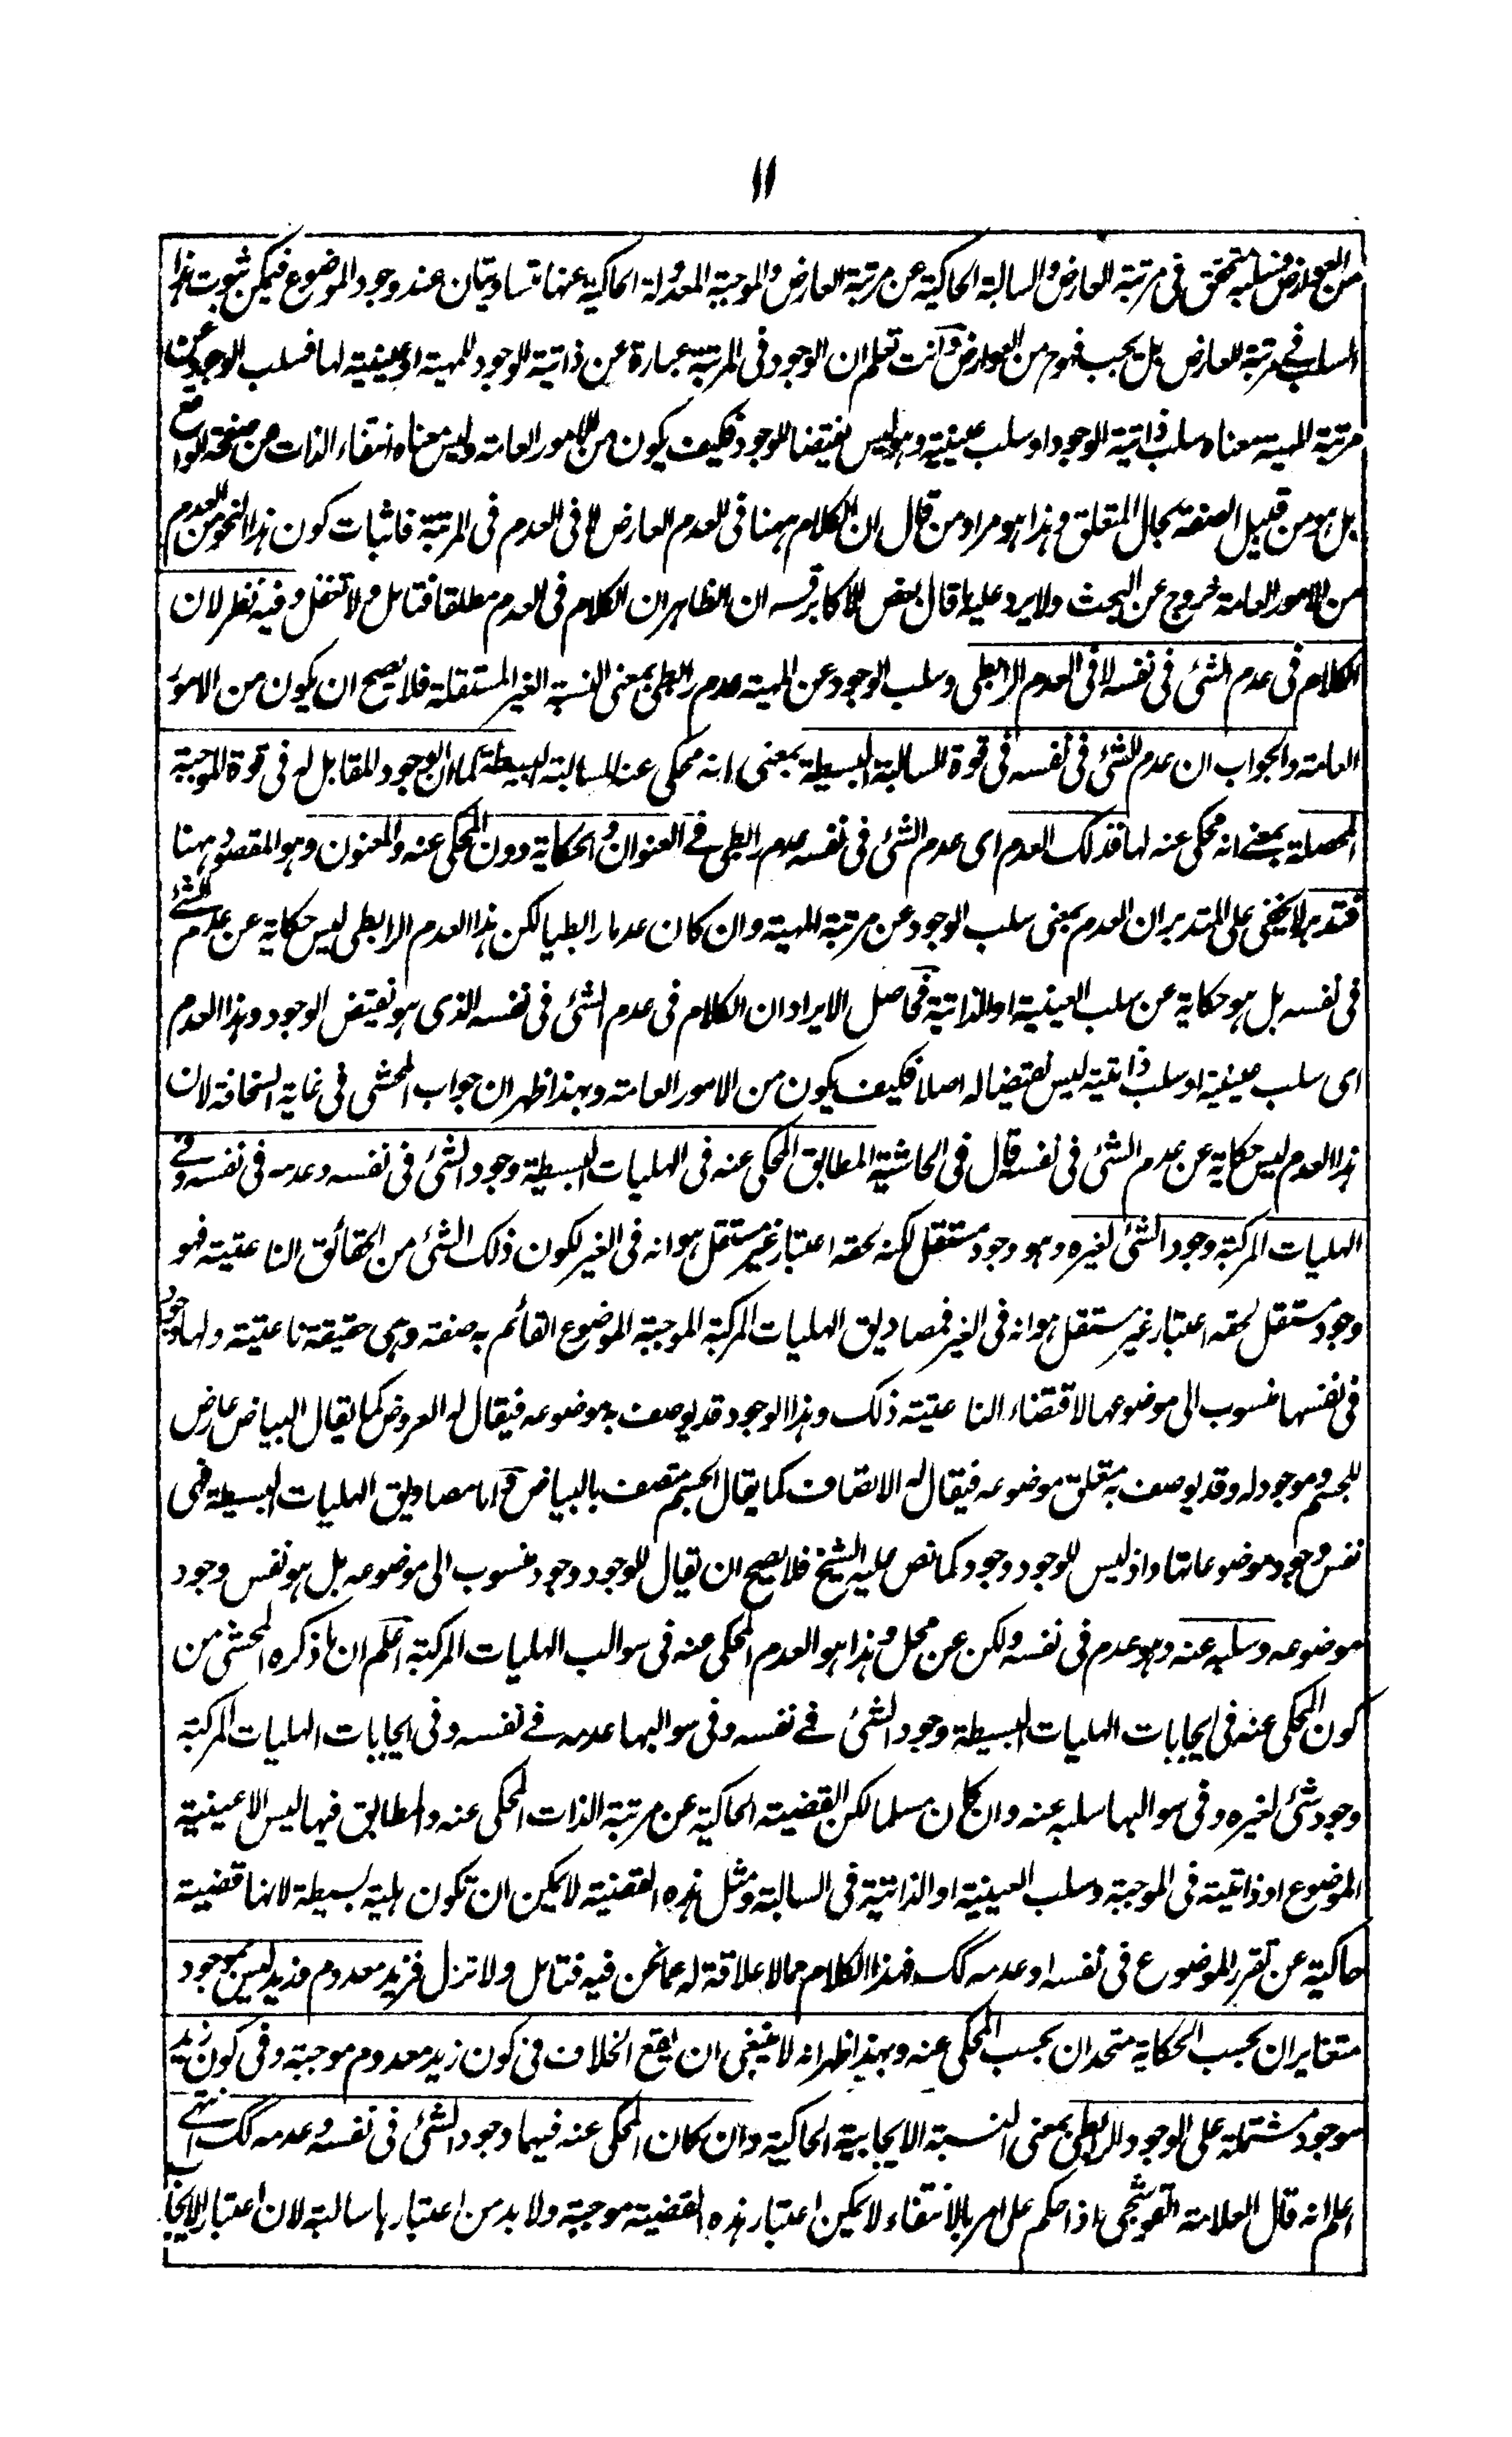 ١١
من العوارض فسلبه متحقق فى مرتبة العارض والسالبة الحاكية عن مرتبة العارض والموجبة المعدولة الحاكية عنها متساويتان عند وجود الموضوع فيمكن ثبوت هذا
السلب فے مرتبة العارض بل يجب فهوم من العوارض وانت تعلم ان الوجود فى المرتبة عبارة عن ذاتية الوجود للمهية او عينية لها فسلب الوجود عن
مرتبة المهية معناه سلب ذاتية الوجود او سلب عينية وهو ليس نقيضا للوجود فكيف يكون من الامور العامة وليس معناه انتفاء الذات من صفحة الواقع
بل هو من قبيل الصفة بحال المتعلق وهذا هو مراد من قال ان الكلام ههنا فى العدم العارض لا فى العدم فى المرتبة فاثبات كون هذا النحو من العدم
من الامور العامة خروج عن البحث ولا يرد عليه ما قال بعض الاكابر قسه ان الظاهر ان الكلام فى العدم مطلقا فتامل ولا تغفل وفيه نظر لان
الكلام فى عدم الشئ فى نفسه لا فى العدم الرابطى وسلب الوجود عن المهية عدم رابطى بمعنى النسبة الغير المستقلة فلا يصح ان يكون من الامور
العامة والجواب ان عدم الشئ فى نفسه فى قوة السالبة البسيطة بمعنى انه محكى عنه للسالبة البسيطة كما ان الوجود المقابل له فى قوة الموجبة
المحصلة بمعنے انه محكى عنه لها فذلك العدم اى عدم الشئ فى نفسه عدم رابطى فے العنوان والحكاية دون المحكى عنه والمعنون وهو المقصود ههنا
فتدبر لا يخفى على المتدبر ان العدم بمعنى سلب الوجود عن مرتبة المهية وان كان عدما رابطيا لكن هذا العدم الرابطى ليس حكاية عن عدم الشئ
فى نفسه بل هو حكاية عن سلب العينية او الذاتية فحاصل الايراد ان الكلام فى عدم الشئ فى نفسه الذى هو نقيض الوجود وهذا العدم
اى سلب عينية او سلب ذاتية ليس نقيضا له اصلا فكيف يكون من الامور العامة وبهذا ظهر ان جواب المحشى فى غاية السخافة لان
هذا العدم ليس حكاية عن عدم الشئ فى نفسه قال فى الحاشية المطابق المحكى عنه فى الهليات البسيطة وجود الشئ فى نفسه وعدمه فى نفسه وفے
الهليات المركبة وجود الشئ لغيره وهو وجود مستقل لكنه لحقه اعتبار غير مستقل هو انه فى الغير لكون ذلك الشئ من الحقائق الناعتية فهو
وجود مستقل لحقه اعتبار غير مستقل هو انه فى الغير فمصاديق الهليات المركبة الموجبة الموضوع القائم به صفة وهى حقيقة ناعتية ولها وجود
فى نفسها منسوب الى موضوعها لاقتضاء الناعتية ذلك وهذا الوجود قد يوصف به موضوعه فيقال له العروض كما يقال البياض عارض
للجسم وموجود له وقد يوصف به متعلق موضوعه فيقال له الاتصاف كما يقال الجسم متصف بالبياض واما مصاديق الهليات البسيطة فهى
نفس وجود موضوعاتها واذ ليس للوجود وجود كما نص عليه الشيخ فلا يصح ان يقال للوجود وجود منسوب الى موضوعه بل هو نفس وجود
موضوعه وسلبه عنه وهو عدم فى نفسه ولكن عن محل وهذا هو العدم المحكى عنه فى سوالب الهليات المركبة اعلم ان ما ذكره المحشى من
كون المحكى عنه فى ايجابات الهليات البسيطة وجود الشئ فے نفسه وفى سوالبها عدمه فے نفسه وفى ايجابات الهليات المركبة
وجود شئ لغيره وفى سوالبها سلبه عنه وان كان مسلما لكن القضية الحاكية عن مرتبة الذات المحكى عنه والمطابق فيها ليس الا عينية
الموضوع او ذاتية فى الموجبة وسلب العينية او الذاتية فى السالبة ومثل هذه القضية لا يمكن ان تكون هلية بسيطة لانها قضية
حاكية عن تقرر الموضوع فى نفسه او عدمه كك فهذا الكلام مما لا علاقة له عما نحن فيه فتامل ولا تزل فزيد معدوم فزيد ليس بموجود
متغايران بحسب الحكاية متحدان بحسب المحكى عنه وبهذا ظهر انه لا ينبغى ان يقع الخلاف فى كون زيد معدوم موجبة وفى كون زيد
موجود مشتملة على الوجود الرابطى بمعنى النسبة الايجابية الحاكية وان كان المحكى عنه فيهما وجود الشئ فى نفسه وعدمه كك انتهے
اعلم انه قال العلامة القوشجى اذا حكم على امر بالانتفاء لا يمكن اعتبار هذه القضية موجبة ولا بد من اعتبارها سالبة لان اعتبار الايجاب